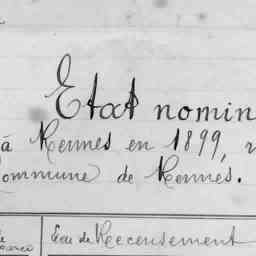 Etat nomin
à Rennes en 1899,
Commune de Rennes.
Lieu de Recensement